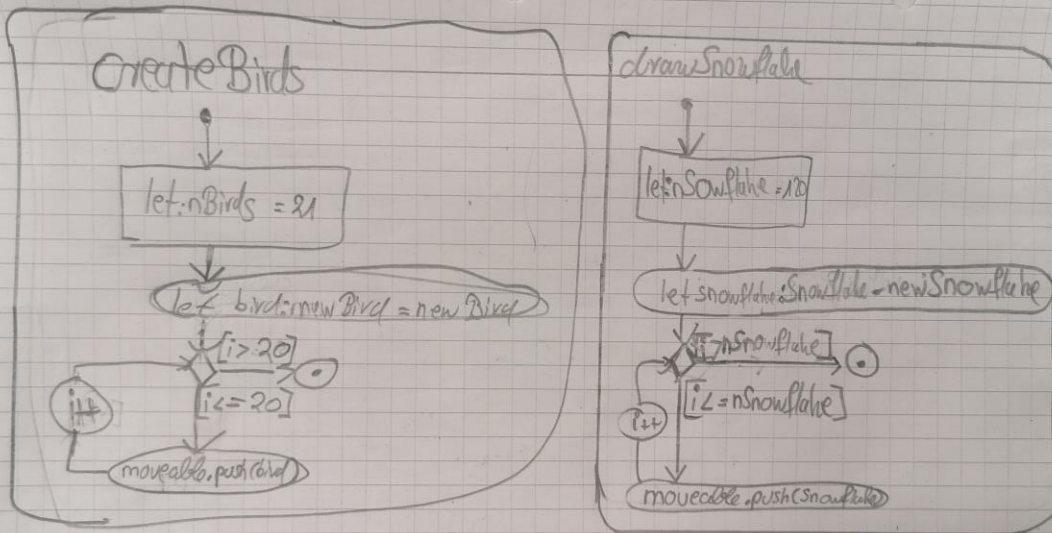 createBirds
let:nBirds = 21
let bird:newBird = new Bird
[i>20]
[i<=20]
i++
moveable.push(bird)
drawSnowflake
let:nSowflake = 120
let snowflake:Snowflake = newSnowflake
[i>nSnowflake]
[i<=nSnowflake]
i++
moveable.push(Snowflake)